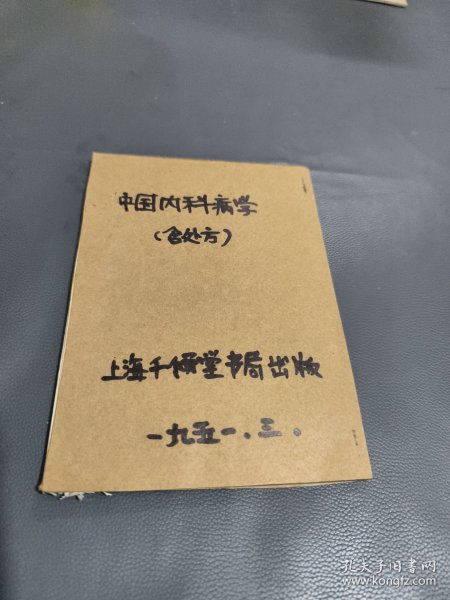 中国内科病学
(含处方)
上海千倾堂书局出版
一九五一.三.
孔夫子旧书网
www.kongfz.com